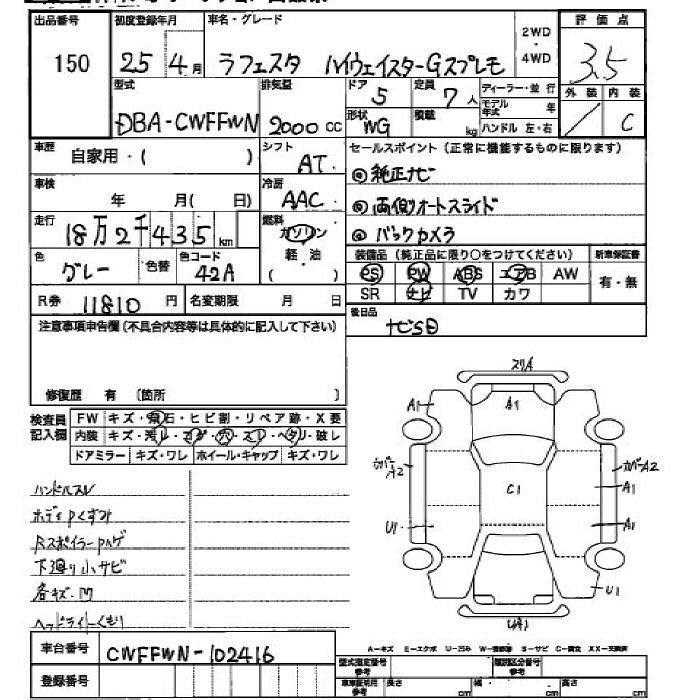 出品番号
150
初度登録年月
25 4月
車名・グレード
ラフェスタ ハイウェイスターGスプレモ
2WD
・
4WD
評価点
3.5
外装 内装
/ C
型式
DBA-CWFFWN
排気量
2000 cc
ドア
5
定員
7 人
形状
WG
積載
kg
ディーラー・並行
モデル年式 年
ハンドル 左・右
車歴 自家用・( )
シフト
AT
車検 年 月( 日)
冷房
AAC
走行 18万2千435km
燃料
ガソリン
軽・油
( )
色 グレー 色替
色コード
42A
R券 11810 円
名変期限 月 日
セールスポイント(正常に機能するものに限ります)
◎純正ナビ
◎両側オートスライド
◎バックカメラ
装備品(純正品に限り○をつけてください)
PS PW ABS エアB AW
SR ナビ TV カワ
新車保証書
有・無
後日品
ナビSD
注意事項申告欄(不具合内容等は具体的に記入して下さい)
修復歴 有 〔箇所 〕
検査員
記入欄
FW キズ・飛石・ヒビ割・リペア跡・X要
内装 キズ・汚レ・コゲ・穴・スレ・ヘタリ・破レ
ドアミラー キズ・ワレ ホイール・キャップ キズ・ワレ
ハンドルスレ
ボディPくすみ
RスポイラーPハゲ
下廻り小サビ
各キズ・凹
ヘッドライトくもり
スリA
A1
A1
カバーA2
カバーA2
C1
A1
U1
A1
U1
UA1
A-キズ E-エクボ U-凹み W-補修跡 S-サビ C-腐食 XX-交換済
車台番号 CWFFWN-102416
登録番号
型式指定番号
参考
類別区分番号
参考
車車証明用
参考
長さ cm
幅 cm
高さ cm